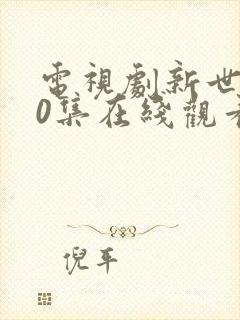 電視劇新世
0集在綫觀看
倪平